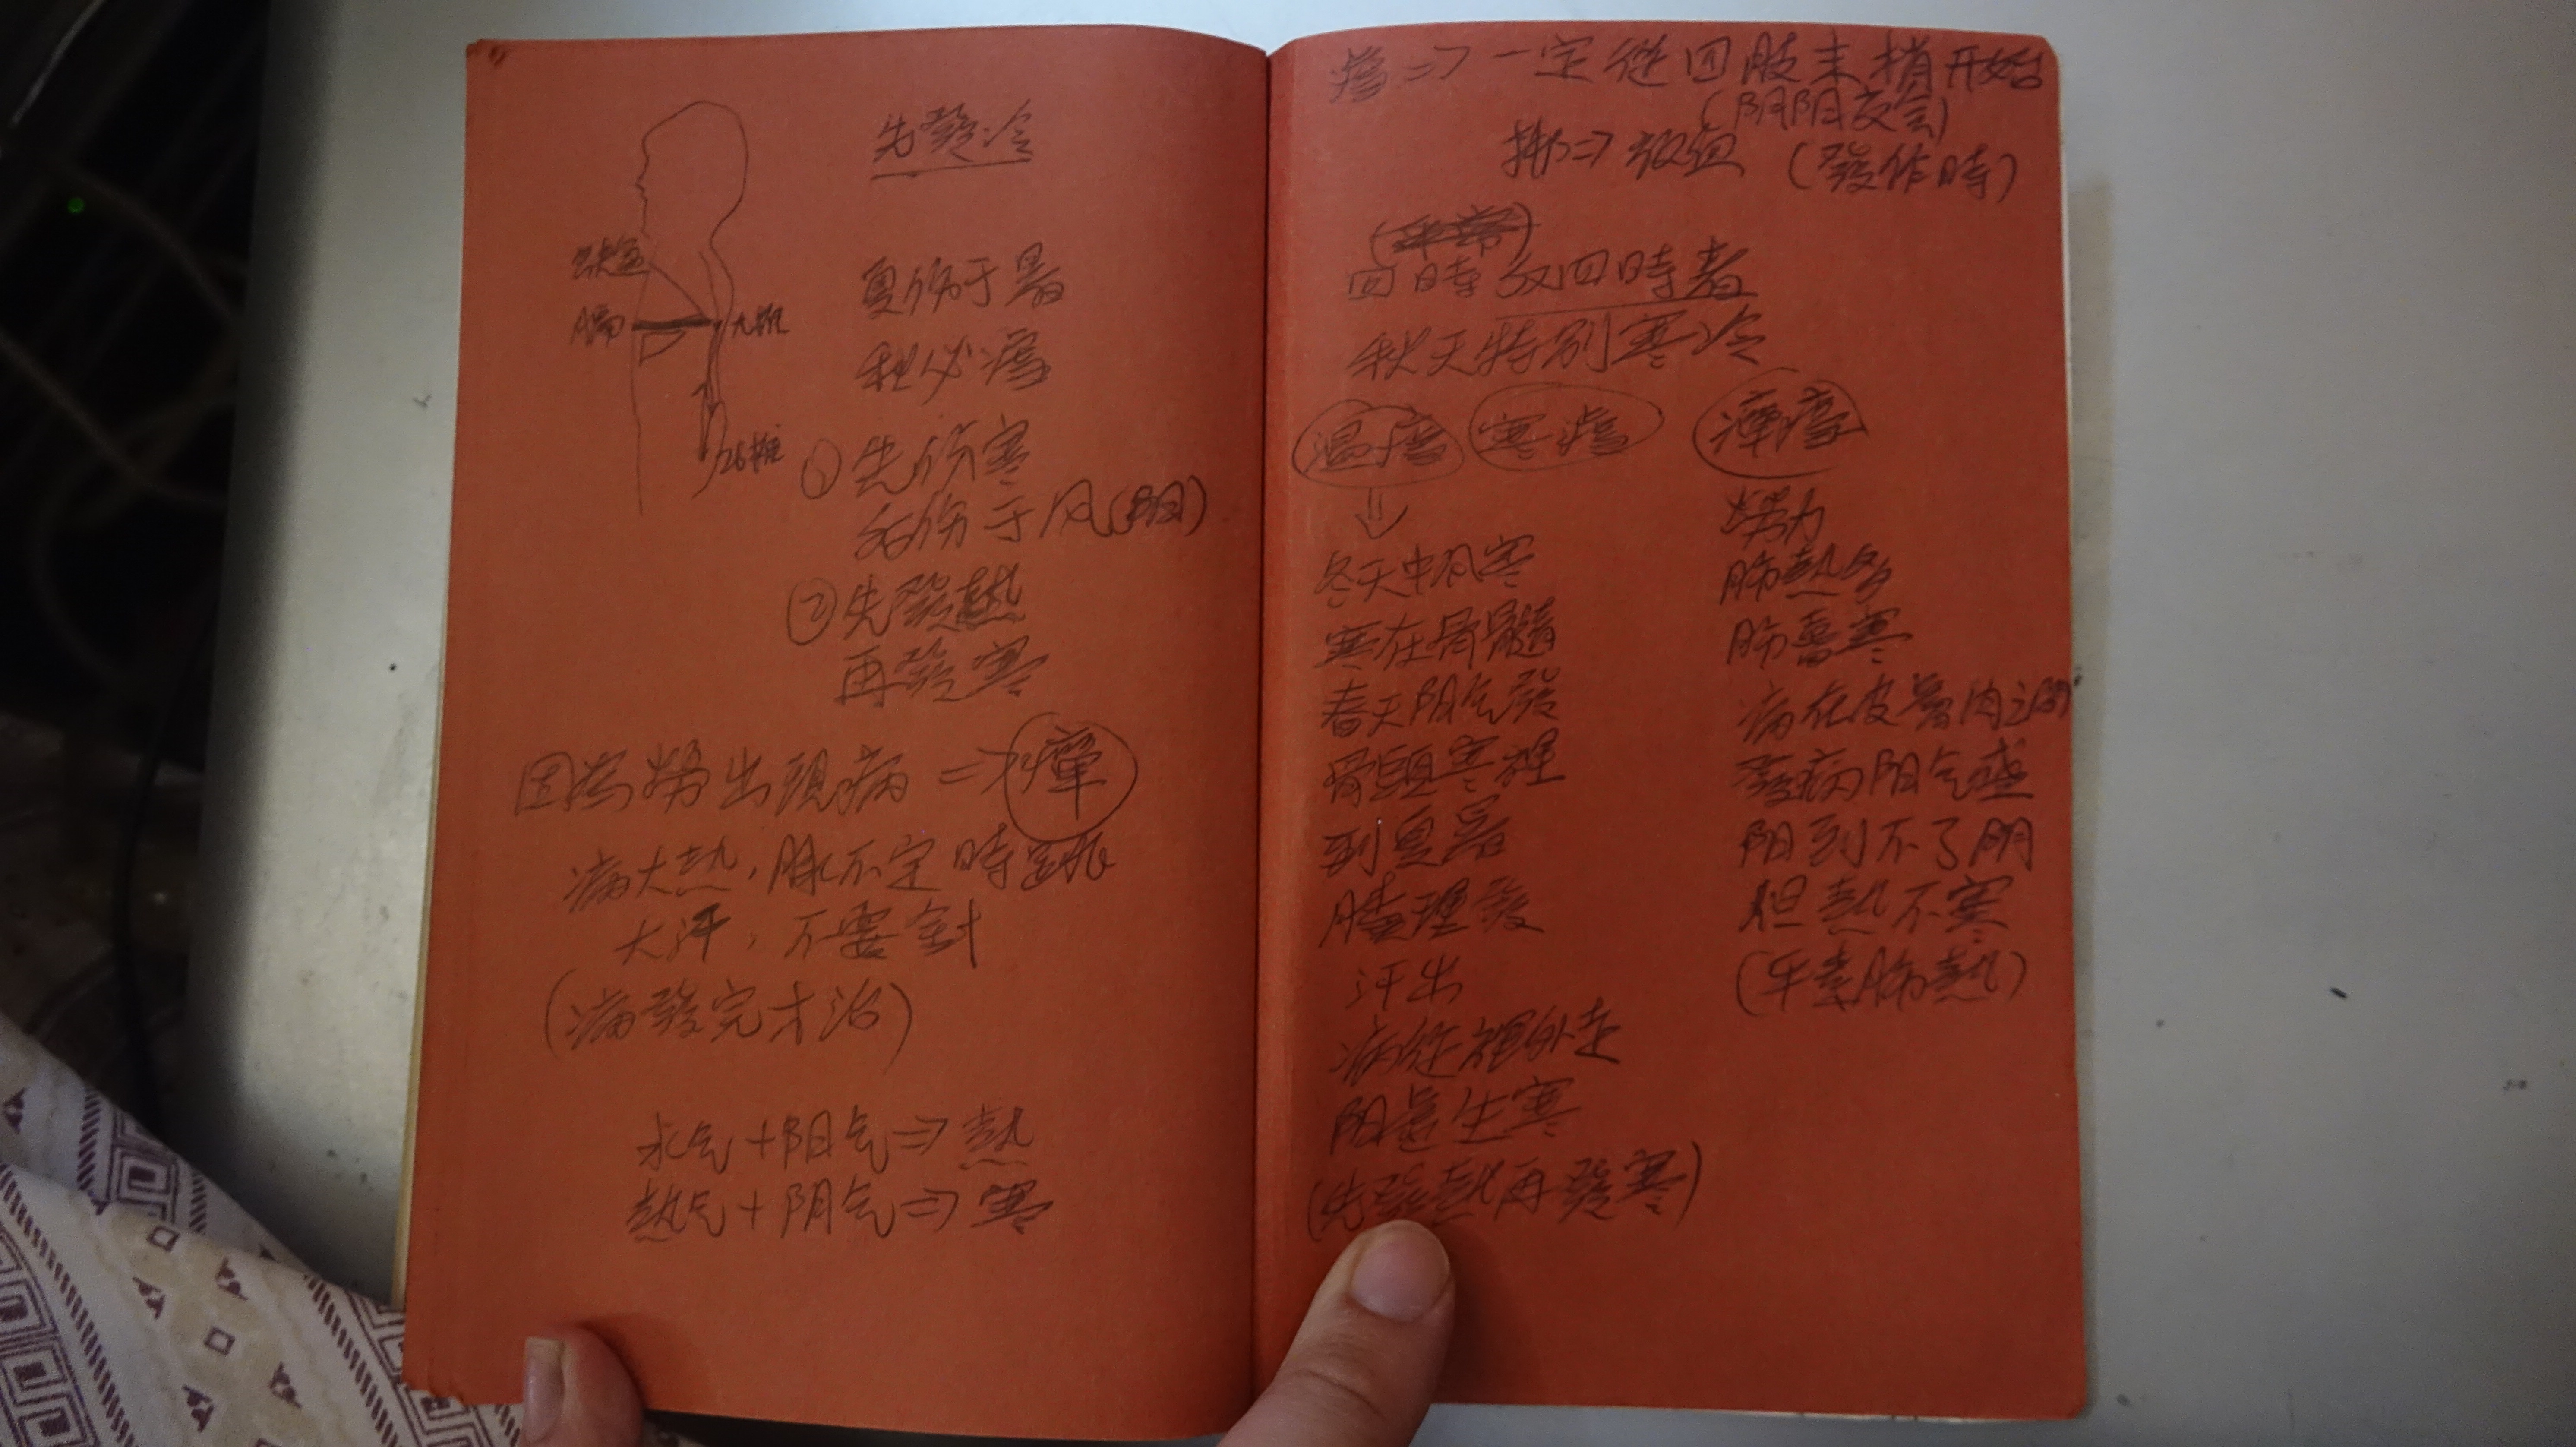 先發冷
缺盆
膈
九椎
26椎
夏伤于暑
秋必瘧
①先伤寒
后伤于风(阳)
②先發熱
再發寒
因為勞出現病⇒癉
病大熱,脉不定時跳
大汗,不要針
(病發完才治)
水气+阳气⇒熱
熱气+阴气⇒寒
瘧⇒一定從四肢末梢开始
(阴阳交会)
⇒放血 (發作時)
四時反四時者
秋天特別寒冷
温瘧 寒瘧 癉瘧
⇓
冬天中风寒
寒在骨髓
春天阳气發
骨頭寒裡
到夏暑
腠理發
汗出
病從裡外走
阳虛生寒
(先發熱再發寒)
勞力
肺熱多
肺喜寒
病在皮膚肉之間
發病阳气盛
阳到不了阴
但熱不寒
(平素肺熱)